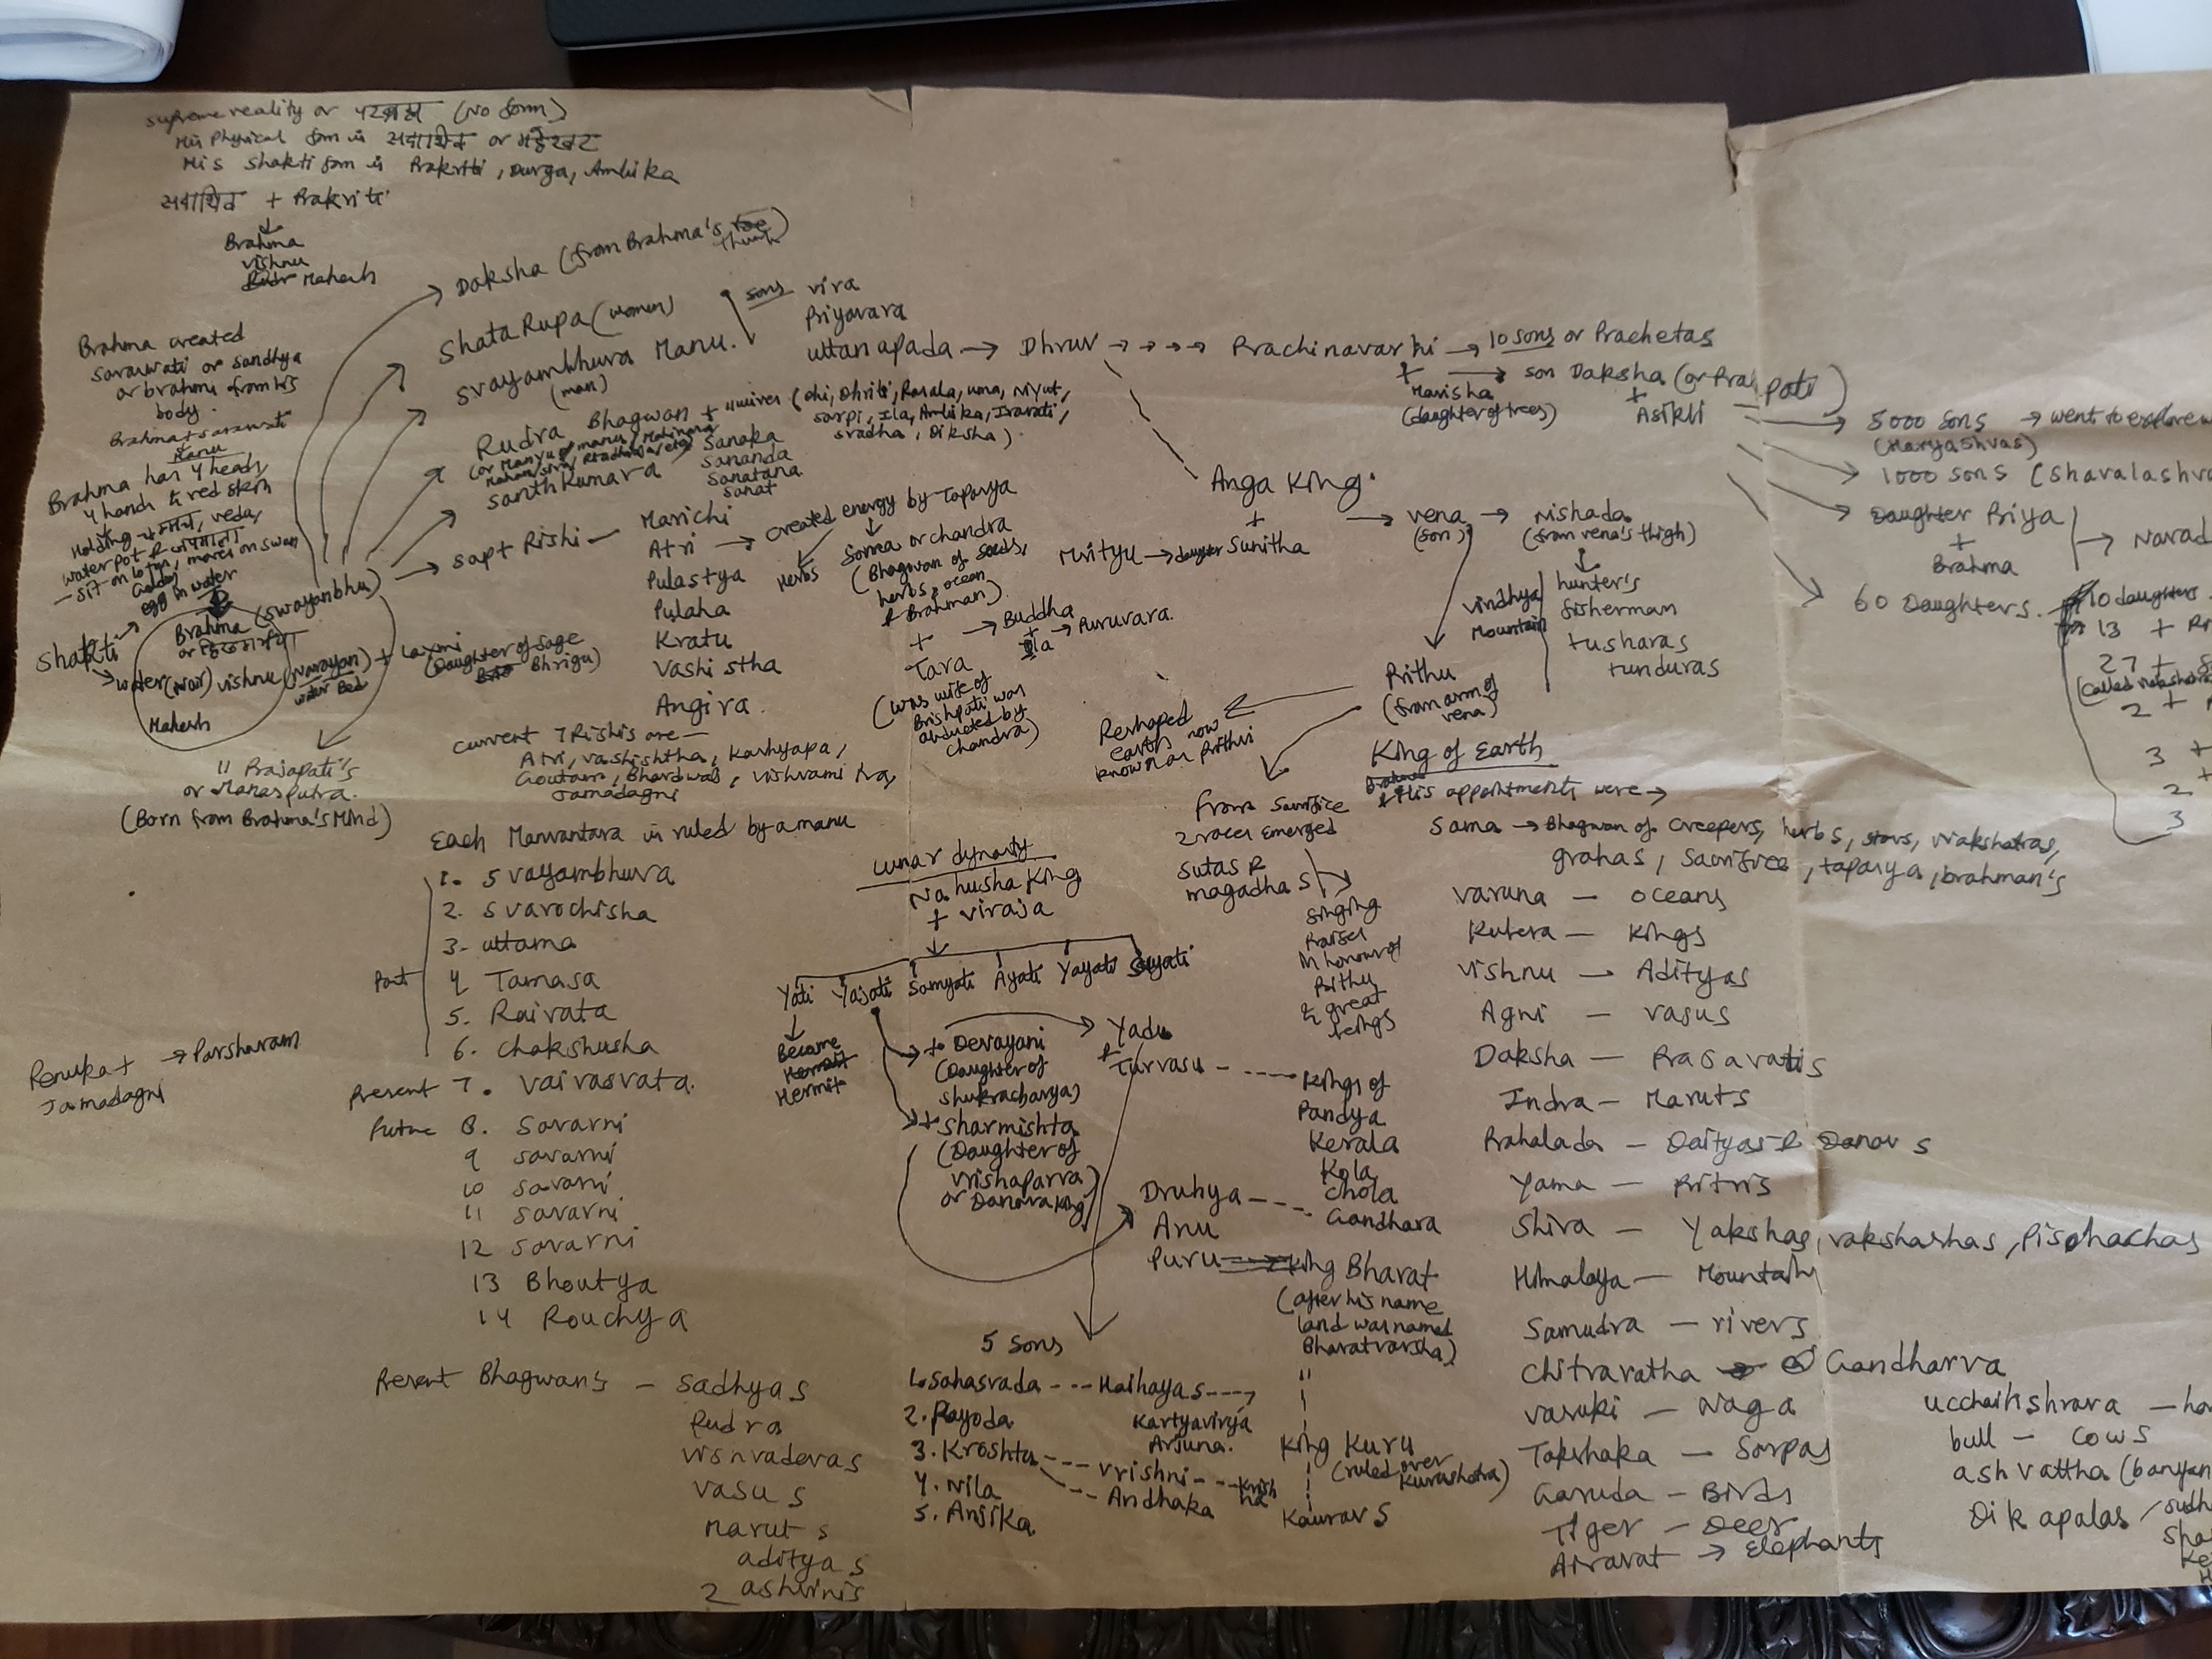 supreme reality or परब्रह्म (No form)
His Physical form is सदाशिव or महेश्वर
His Shakti form is Prakriti, Durga, Ambika
सदाशिव + Prakriti
Brahma
vishnu
Mahesh
Brahma created
saraswati or sandhya
or brahmi from his
body.
Brahma + saraswati
Manu
Brahma has 4 heads,
4 hands & red skin
Holding veda,
water pot &
- sit on lotus, moves on swan
Golden
egg in water
Shakti
Brahma (Swayambhu)
or हिरण्यगर्भ
water (Nar) vishnu (Narayan) + Laxmi
water Bed
(Daughter of sage
Bhrigu)
Mahesh
11 Prajapati's
or Manasputra.
(Born from Brahma's Mind)
Daksha (from Brahma's toe)
thumb
ShataRupa (women)
Svayambhuva Manu.
(man)
sons
vira
Priyavara
uttanapada → Dhruv → → → → Prachinavarhi → 10 sons or Prachetas
+
Marisha → son Daksha (or Pra pati)
(daughter of trees)
+
Asikli
Rudra Bhagwan + 11 wives (Dhi, Dhriti, Rasala, uma, Niyut,
sarpi, Ila, Ambika, Iravati,
sradha, Diksha)
Santhkumara
Sanaka
Sananda
Sanatana
Sanat
Sapt Rishi — Marichi
Atri → created energy by Tapasya
Pulastya
Pulaha
Kratu
Vashistha
Angira.
Herbs
Soma or chandra
(Bhagwan of seeds,
herbs, ocean
& Brahman)
+ → Buddha
+
Ila → Pururvara.
Tara
(was wife of
Brishpati was
abducted by
chandra)
current 7 Rishis are —
Atri, vashishtha, Kashyapa,
Goutam, Bhardwaj, vishvamitra,
Jamadagni
Anga King.
+
Mrityu → daughter Sunitha
→ vena
(son)
→ Nishada
(from vena's thigh)
vindhya
Mountain
hunter's
fisherman
tusharas
tunduras
Prithu
(from arm of
vena)
Reshaped
earth now
known as Prithvi
King of Earth
His appointments were →
From Sacrifice
2 races Emerged
Sutas &
magadhas
singing
Praises
in honour of
Prithu
& great
kings
5000 sons → went to explore
(Haryashvas)
1000 sons (Shavalashva
Daughter Priya
+
Brahma
→ Narad
60 Daughters.
10 daughters
13 +
27 +
2 +
3 +
2 +
3
Soma → Bhagwan of creepers, herbs, stars, Nakshatras,
grahas, Sacrifice, tapasya, brahman's
Varuna — oceans
Kubera — Kings
Vishnu — Adityas
Agni — vasus
Daksha — Prajapatis
Indra — Maruts
Prahalada — Daityas & Danavs
Yama — Pitris
Shiva — Yakshas, rakshashas, Pisohachas
Himalaya — Mountains
Samudra — rivers
Chitraratha → Gandharva
Vasuki — Naga
Takshaka — Sarpas
Garuda — Birds
Tiger — Deer
Airavat → Elephants
ucchaihshrava — ho
bull — cows
ashvattha (banyan
Dikapalas
Each Manvantara is ruled by a manu
1. Svayambhuva
2. Svarochisha
3. uttama
Past
4 Tamasa
5. Raivata
6. chakshusha
Present 7. Vaivasvata.
Future 8. Savarni
9 savarni
10 savarni
11 savarni
12 savarni
13 Bhoutya
14 Rouchya
Renuka + → Parsharam
Jamadagni
Present Bhagwan's — Sadhyas
Rudra
visnvadevas
vasus
maruts
adityas
2 ashvinis
Lunar dynasty
Nahusha King
+ viraja
Yati
Yajati
Samyati
Ayati
Yayati
Suyati
Became
Hermit
+ Devayani
(Daughter of
Shukracharya)
Yadu
& Turvasu - ---- Kings of
Pandya
Kerala
Kola
Chola
Gandhara
+ Sharmishta
(Daughter of
Vrishaparva)
or Danava King
Druhya
Anu
Puru
King Bharat
(after his name
land was named
Bharatvarsha)
King Kuru
(ruled over
Kurushetra)
Kauravs
5 sons
1. Sahasrada --- Haihayas --->
Kartyavirya
Arjuna.
2. Payoda
3. Kroshtu --- Vrishni --- Krish
na
Andhaka
4. Nila
5. Anjika